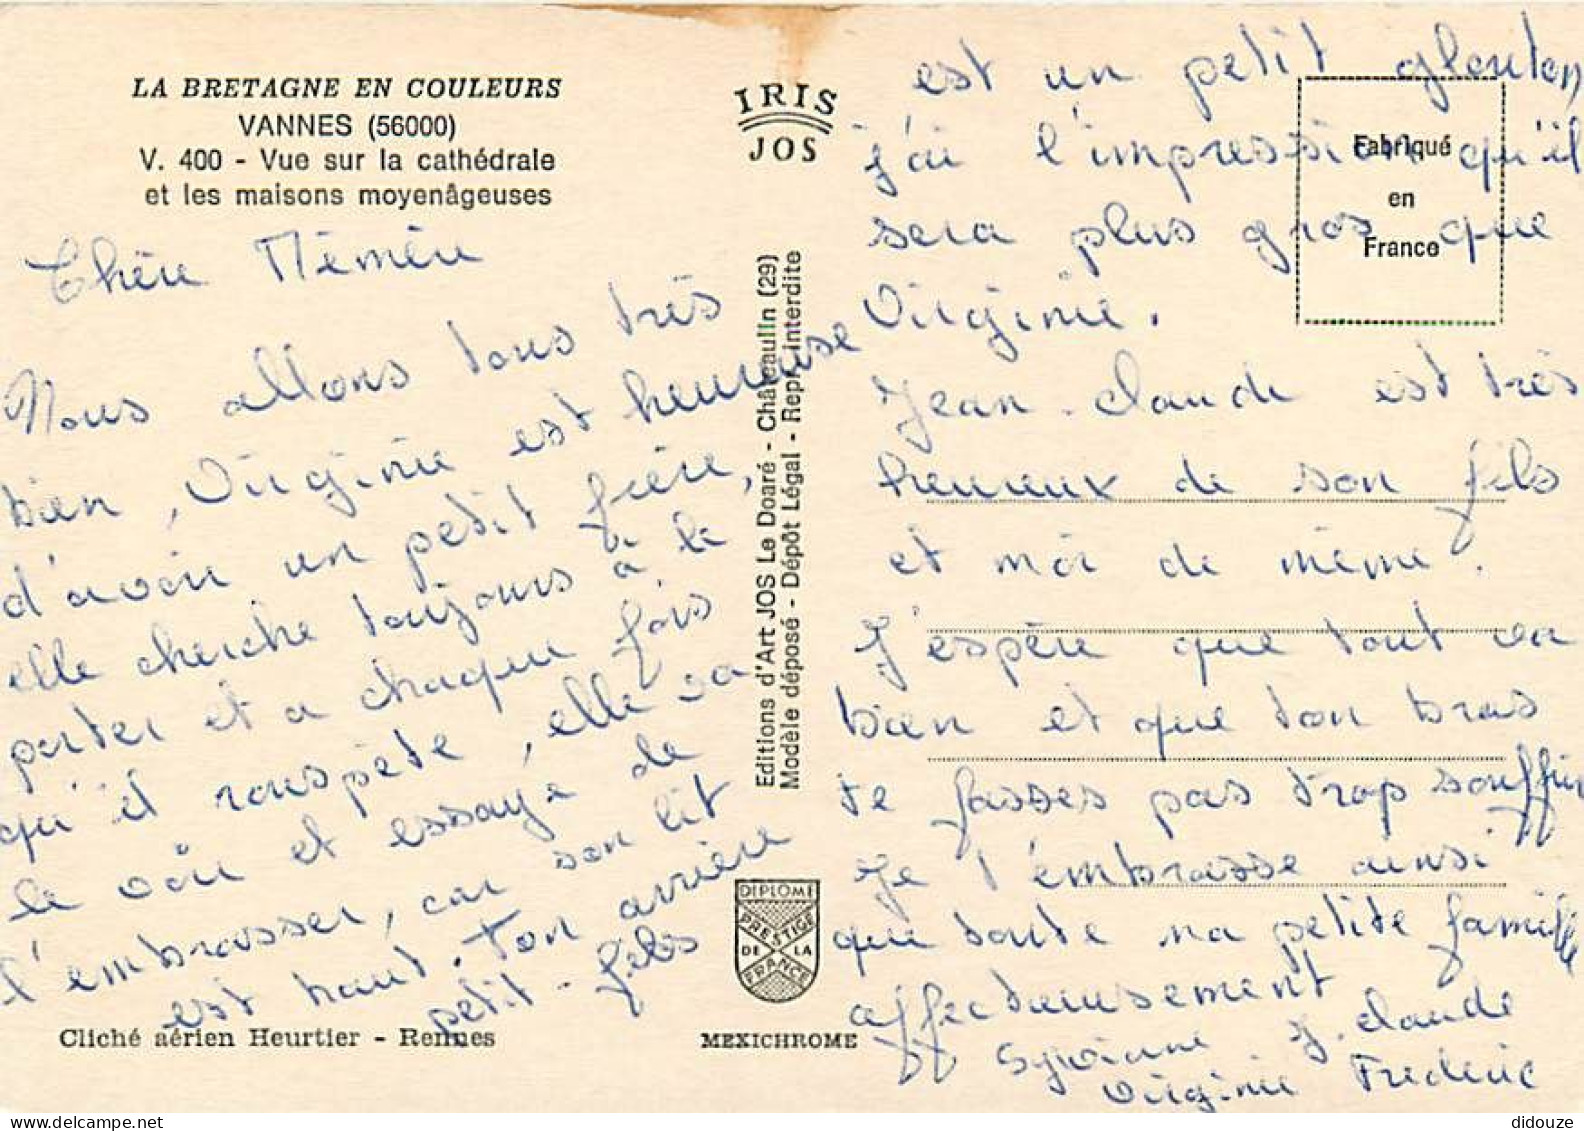 LA BRETAGNE EN COULEURS
VANNES (56000)
V. 400 - Vue sur la cathédrale
et les maisons moyenâgeuses
Chère Mémère
Nous allons tous très
bien, Virginie est heureuse
d'avoir un petit frère,
elle cherche toujours à le
porter et a chaque fois
qu'il rouspète, elle va
le voir et essaye de
l'embrasser, car son lit
est haut. Ton arrière
petit-fils
Cliché aérien Heurtier - Rennes
IRIS
JOS
Editions d'Art JOS Le Doaré - Châteaulin (29)
Modèle déposé - Dépôt Légal - Repr. interdite
DIPLOME
PRESTIGE
DE LA
FRANCE
MEXICHROME
Fabriqué
en
France
est un petit glouton
j'ai l'impression qu'il
sera plus gros que
Virginie.
Jean-claude est très
heureux de son fils
et moi de même.
J'espère que tout va
bien et que ton bras
te fasses pas trop souffrir
Je t'embrasse ainsi
que toute ma petite famille
affectueusement
Sylviane J. claude
Virginie Frederic
didouze